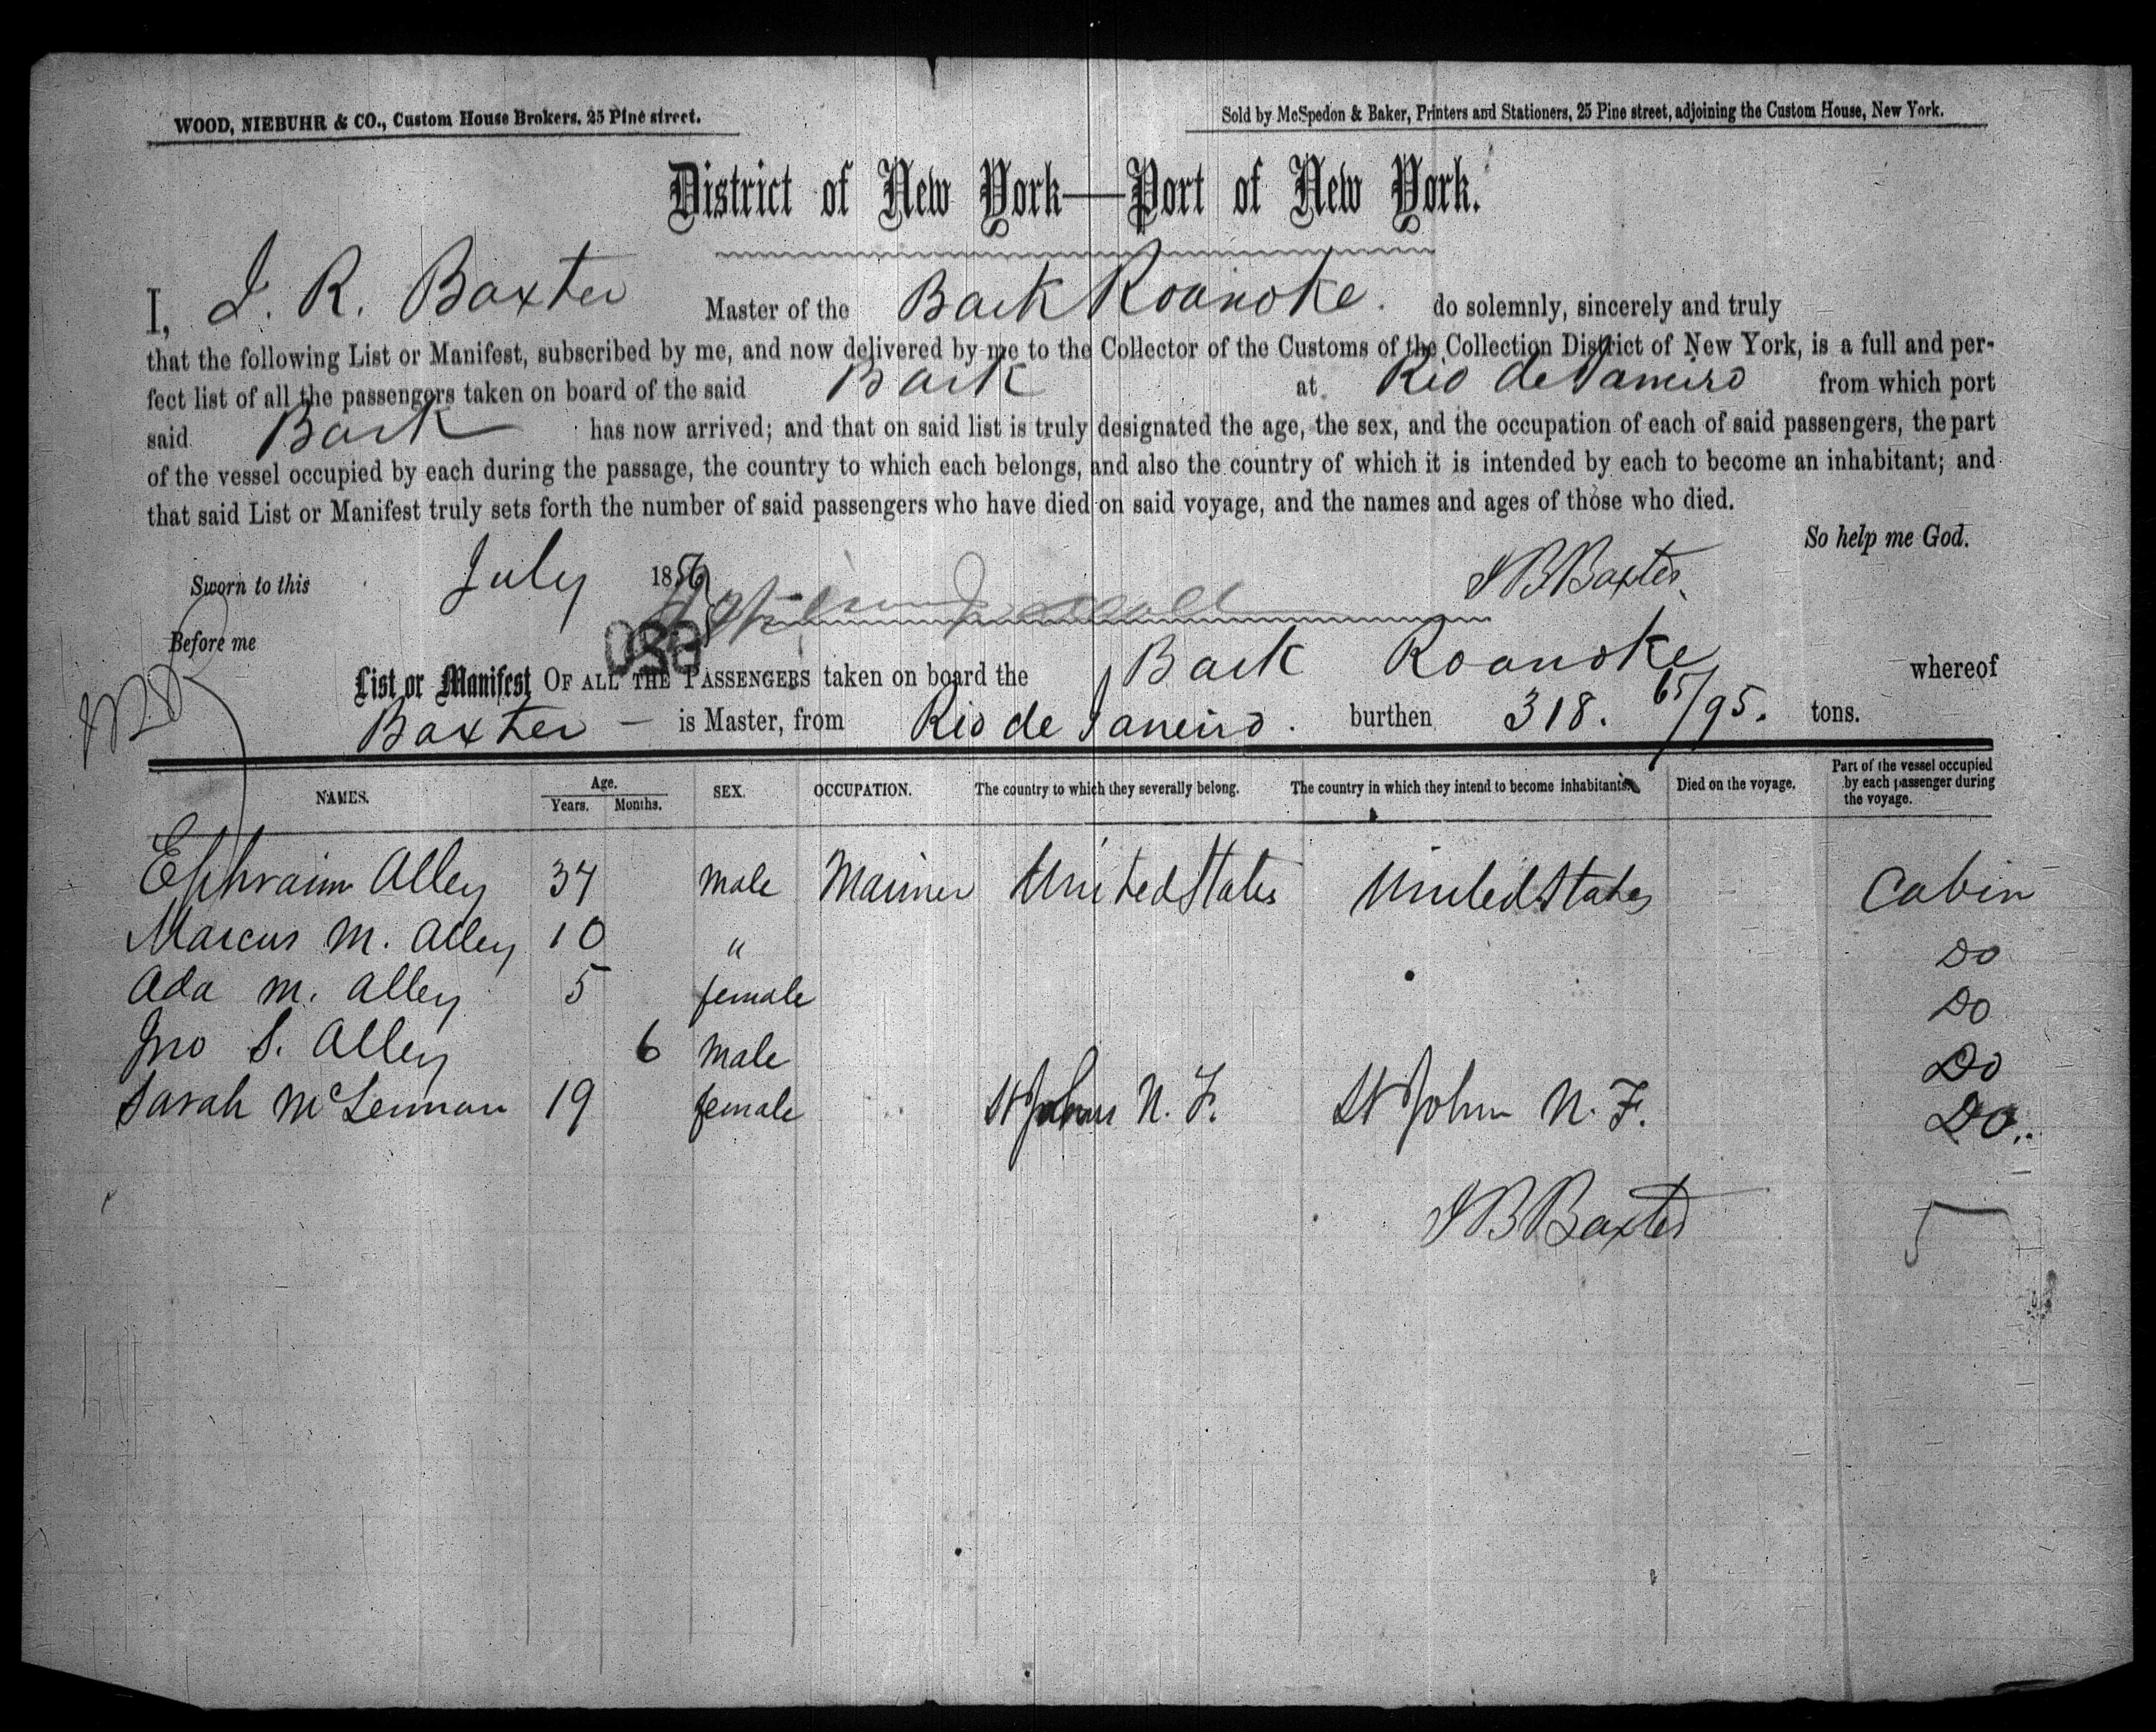 WOOD, NIEBUHR & CO., Custom House Brokers, 25 Pine street.
Sold by McSpedon & Baker, Printers and Stationers, 25 Pine street, adjoining the Custom House, New York.
District of New York—Port of New York.
I, J. R. Baxter Master of the Bark Roanoke. do solemnly, sincerely and truly
that the following List or Manifest, subscribed by me, and now delivered by me to the Collector of the Customs of the Collection District of New York, is a full and per-
fect list of all the passengers taken on board of the said Bark at Rio de Janeiro from which port
said Bark has now arrived; and that on said list is truly designated the age, the sex, and the occupation of each of said passengers, the part
of the vessel occupied by each during the passage, the country to which each belongs, and also the country of which it is intended by each to become an inhabitant; and
that said List or Manifest truly sets forth the number of said passengers who have died on said voyage, and the names and ages of those who died.
So help me God.
Sworn to this July 1856 J B Baxter
Before me
List or Manifest OF ALL THE PASSENGERS taken on board the Bark Roanoke whereof
Baxter — is Master, from Rio de Janeiro. burthen 318. 65/95. tons.
NAMES. Age. Years. Months. SEX. OCCUPATION. The country to which they severally belong. The country in which they intend to become inhabitants. Died on the voyage. Part of the vessel occupied by each passenger during the voyage.
Ephraim Alley 34 male Mariner United States United States Cabin
Marcus M. Alley 10 " Do
Ada M. Alley 5 female Do
Jno S. Alley 6 male Do
Sarah McLennan 19 female St Johns N. F. St John N. F. Do..
J B Baxter